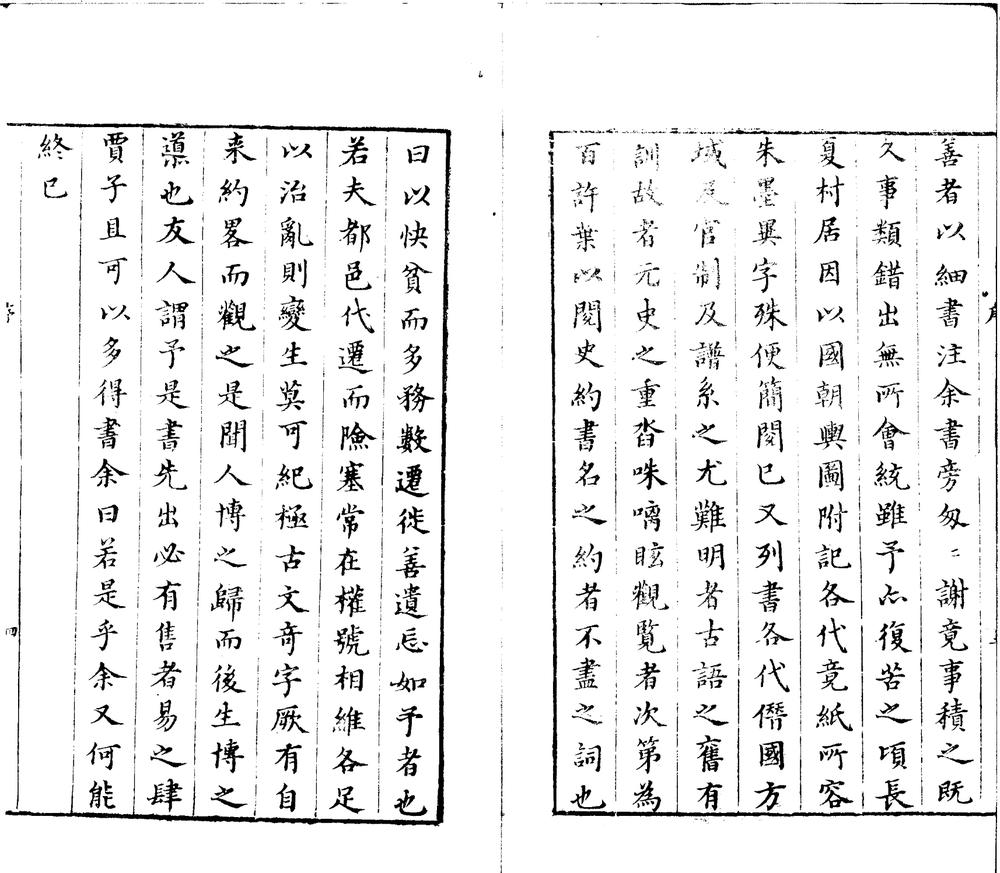 善者以細書注余書旁匆〻謝竟事積之既
久事類錯出無所會統雖予亦復苦之頃長
夏村居因以國朝輿圖附記各代竟紙所容
朱墨異字殊便簡閱已又列書各代僭國方
域及官制及譜系之尤難明者古語之舊有
訓故者元史之重沓咮𠷎眩觀覽者次第為
百許葉以閱史約書名之約者不盡之詞也
曰以快貧而多務數遷徙善遺忘如予者也
若夫都邑代遷而險塞常在權號相維各足
以治亂則變生莫可紀極古文奇字厥有自
来約畧而觀之是聞人博之歸而後生博之
導也友人謂予是書先出必有售者易之肆
賈子且可以多得書余曰若是乎余又何能
終已
序
四